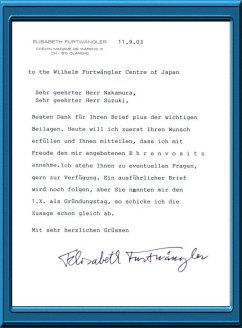 ELISABETH FURTWÄNGLER
11.9.03
CHEMIN MADAME DE WARENS 21
CH - 1815 CLARENS
to the Wilhelm Furtwängler Centre of Japan
Sehr geehrter Herr Nakamura,
Sehr geehrter Herr Suzuki,
Besten Dank für Ihren Brief plus der wichtigen
Beilagen. Heute will ich zuerst Ihren Wunsch
erfüllen und Ihnen mitteilen, dass ich mit
Freude den mir angebotenen E h r e n v o s i t z
annehme.Ich stehe Ihnen zu eventuellen Fragen,
gern zur Verfügung. Ein ausführlicher Brief
wird noch folgen, aber Sie nannten mir den
1.X. als Gründungstag, so schicke ich die
Zusage schon gleich ab.
Mit sehr herzlichen Grüssen
Elisabeth Furtwängler